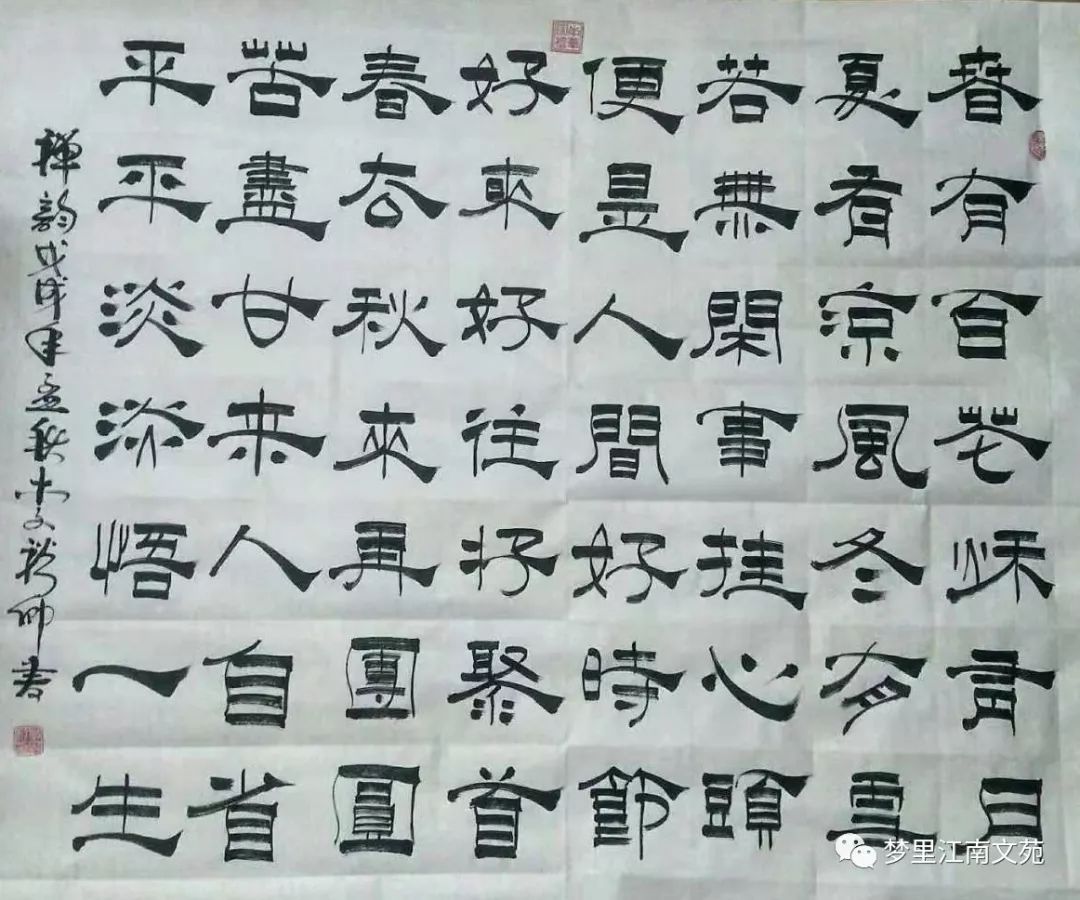 春有百花秋有月
夏有涼風冬有雪
若無閑事挂心頭
便是人間好時節
好來好往好聚首
春去秋來再團圓
苦盡甘来人自省
平平淡淡悟一生
禪韵戊戌年孟秋書
梦里江南文苑